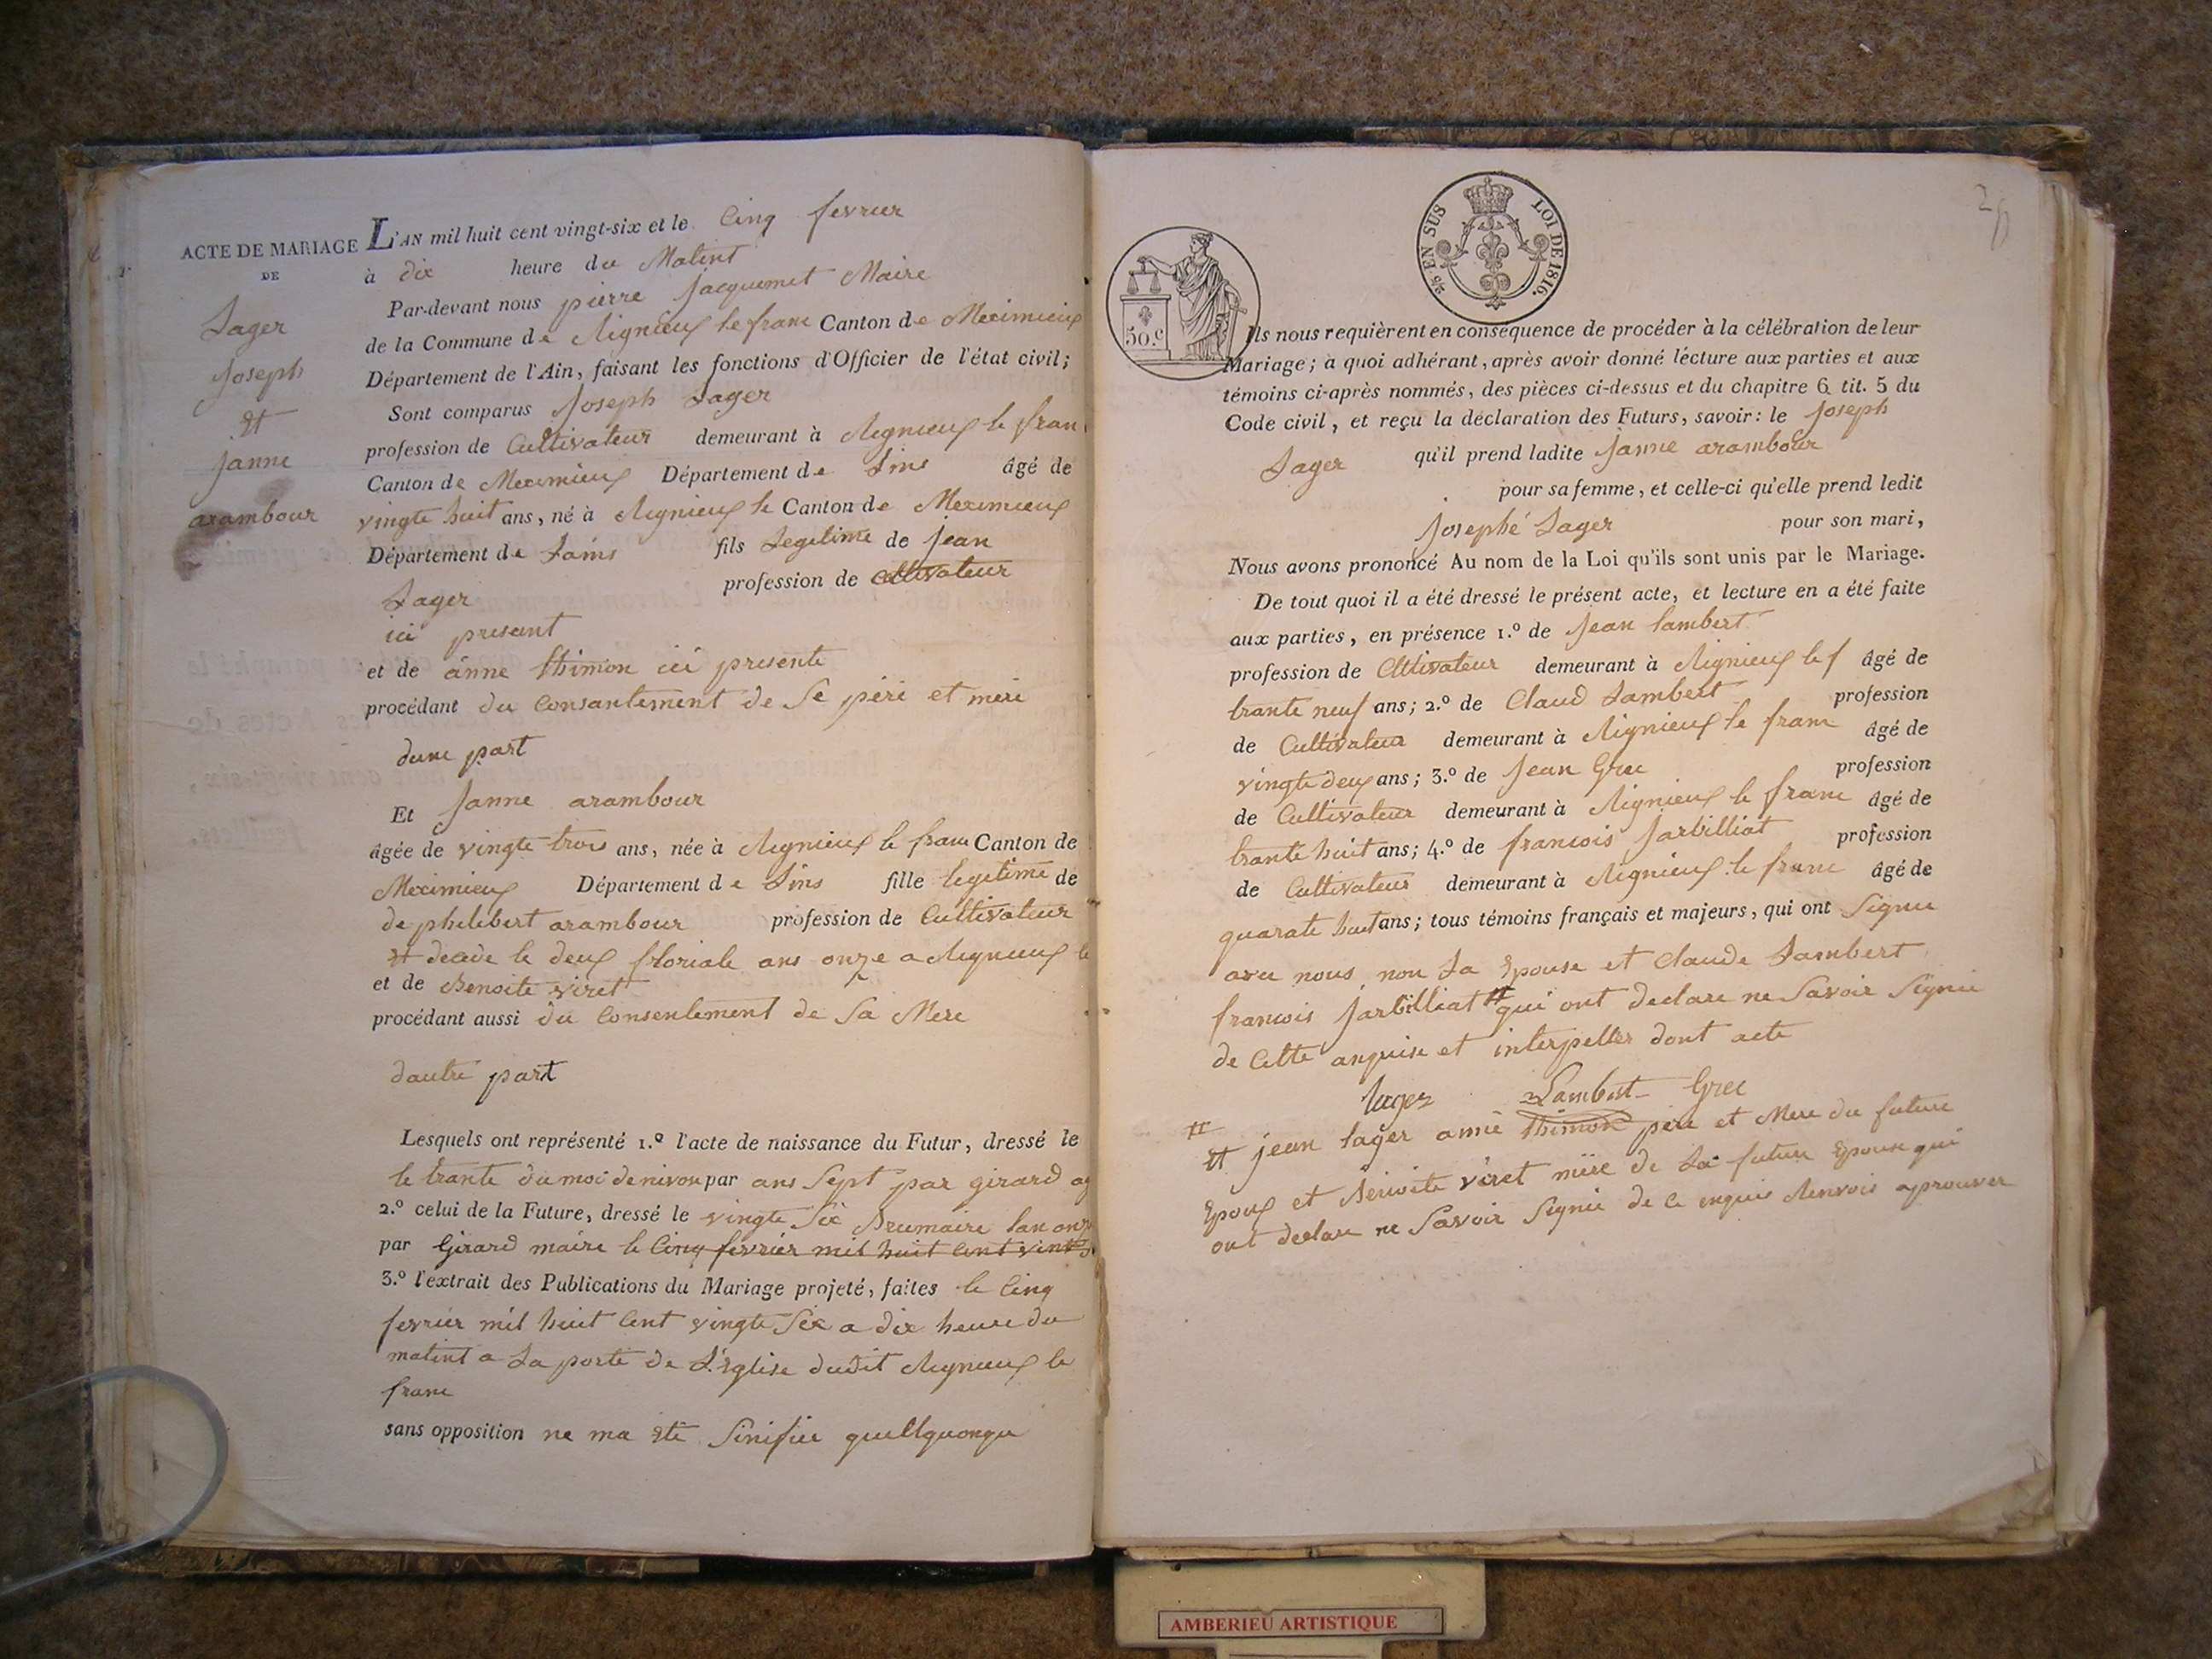 ACTE DE MARIAGE
DE
Lager
Joseph
Et
Janne
arambour
L'AN mil huit cent vingt-six et le Cinq fevrier
à dix heure du Matint
Par-devant nous pierre Jacquemet Maire
de la Commune de Rignieux le franc Canton de Meximieux
Département de l'Ain, faisant les fonctions d'Officier de l'état civil;
Sont comparus Joseph Lager
profession de Cultivateur demeurant à Rignieux le fran
Canton de Meximieux Département de Lins âgé de
vingte huit ans, né à Rignieux le Canton de Meximieux
Département de Lains fils Legitime de jean
Lager profession de Cultivateur
ici present
et de anne thimon ici presente
procédant du Consantement de Se péré et meré
dune part
Et Janne arambour
âgée de vingte trois ans, née à Rignieux le franc Canton de
Meximieux Département de Lins fille legitime de
de philibert arambour profession de Cultivateur
et decede le deux floriale ans onze a Rignieux le
et de Benoite viret
procédant aussi du Consentement de Sa Mere
dautre part
Lesquels ont représenté 1.º l'acte de naissance du Futur, dressé le
le trante du moi de nivou par ans Sept par girard ag
2.º celui de la Future, dressé le vingte Six Brumaire lan onze
par Girard maire le Cinq fevrier mil huit Cent vint s
3.º l'extrait des Publications du Mariage projeté, faites le Cinq
fevrier mil huit Cent vingte Six a dix heure du
matint a La porte de L'Eglise dudit Rignieux le
franc
sans opposition ne ma eté Sinifiee quellquonque
50.C
25 EN SUS LOI DE 1816.
Ils nous requièrent en conséquence de procéder à la célébration de leur
Mariage; à quoi adhérant, après avoir donné lécture aux parties et aux
témoins ci-après nommés, des pièces ci-dessus et du chapitre 6 tit. 5 du
Code civil, et reçu la déclaration des Futurs, savoir: le Joseph
Lager qu'il prend ladite Janne arambour
pour sa femme, et celle-ci qu'elle prend ledit
Josephé Lager pour son mari,
Nous avons prononcé Au nom de la Loi qu'ils sont unis par le Mariage.
De tout quoi il a été dressé le présent acte, et lecture en a été faite
aux parties, en présence 1.º de Jean lambert
profession de Cltivateur demeurant à Rignieux le f âgé de
trante neuf ans; 2.º de Claud Lambert profession
de Cultivateur demeurant à Rignieux le franc âgé de
vingte deux ans; 3.º de Jean Grec profession
de Cultivateur demeurant à Rignieux le franc âgé de
trante huit ans; 4.º de francois Jarbilliat profession
de Cultivateur demeurant à Rignieux le franc âgé de
quarate huit ans; tous témoins français et majeurs, qui ont Signee
avec nous non La Epouse et Claude Lambert
francois Jarbilliat # qui ont declare ne Savoir Signee
de Cette anquise et interpeller dont acte
lager Lambert Grec
# Et jean lager anne thimon pere et Mere du future
Epoux et Benoite viret mere de La future Epouse qui
ont declare ne Savoir Signee de Ce enquis Renvois aprouver
AMBERIEU ARTISTIQUE